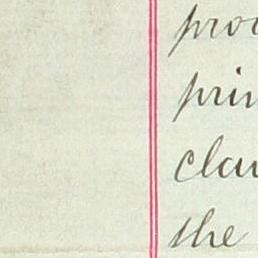 pro
prin
clau
the